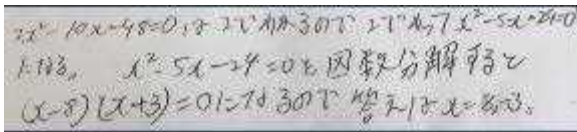 2x²-10x-48=0は2でわれるので2でわって x²-5x-24=0
になる。 x²-5x-24=0を因数分解すると
(x-8)(x+3)=0になるので答えは x=8,-3。